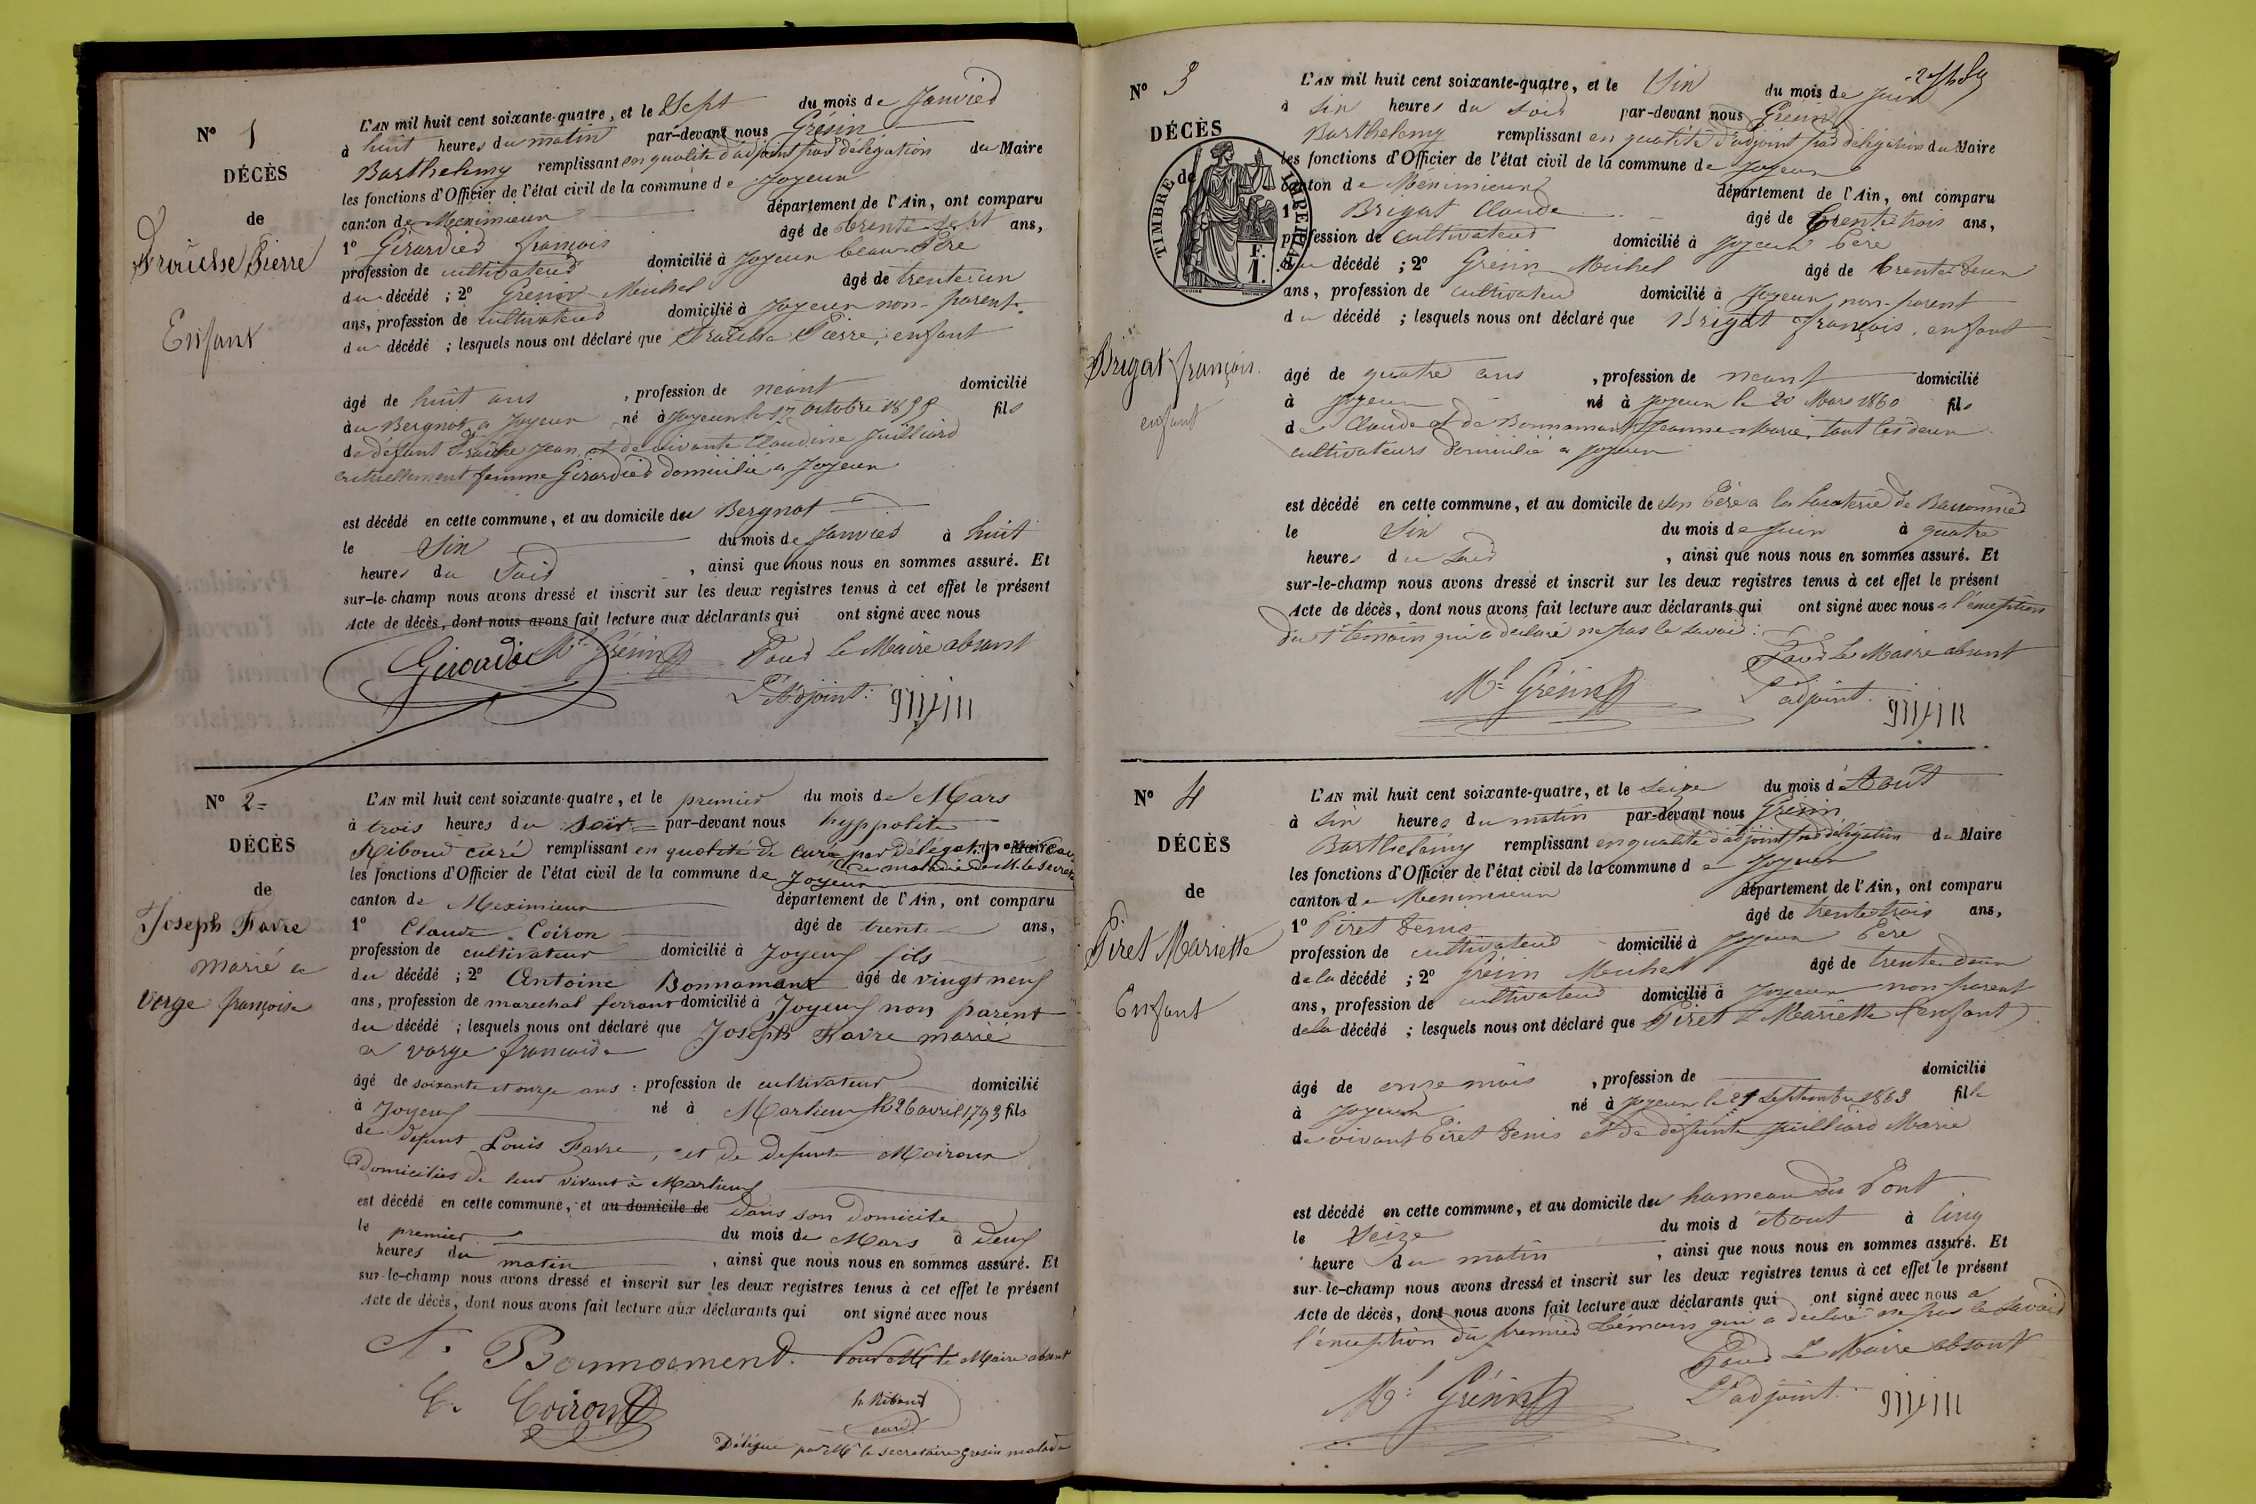 N° 1
DÉCÈS
de
Pierre
Enfant
L'AN mil huit cent soixante-quatre, et le Sept du mois de Janvier
à huit heures du matin par-devant nous Grésin
Barthelemy remplissant en qualité d'adjoint par délégation du Maire
les fonctions d'Officier de l'état civil de la commune de Joyeux
canton de Meximieux département de l'Ain, ont comparu
1° Girardier françois âgé de trente sept ans,
profession de cultivateur domicilié à Joyeux beau-Père
du décédé ; 2° Grésin Michel âgé de trente-un
ans, profession de cultivateur domicilié à Joyeux non-parent
du décédé ; lesquels nous ont déclaré que Pierre, enfant
âgé de huit ans , profession de néant domicilié
au Bergnot à Joyeux né à Joyeux le 17 octobre 1855 fils
de défunt Jean, et de vivante Claudine Juilliard
actuellement femme Girardier domicilié a Joyeux
est décédé en cette commune, et au domicile du Bergnot
le Six du mois de Janvier à huit
heures du Soir , ainsi que nous nous en sommes assuré. Et
sur-le-champ nous avons dressé et inscrit sur les deux registres tenus à cet effet le présent
Acte de décès, dont nous avons fait lecture aux déclarants qui ont signé avec nous
Girardié Mel Grésin Pour le Maire absent
L'Adjoint:
N° 2
DÉCÈS
de
Joseph Favre
marié a
Verge françoise
L'AN mil huit cent soixante-quatre, et le premier du mois de Mars
à trois heures du soir par-devant nous hyppolite
Riboud curé remplissant en qualité de curé par délégation
les fonctions d'Officier de l'état civil de la commune de Joyeux
canton de Meximieux département de l'Ain, ont comparu
1° Claude Coiron âgé de trente ans,
profession de cultivateur domicilié à Joyeux fils
du décédé ; 2° Antoine Bonnamant âgé de vingt neuf
ans, profession de marechal ferrant domicilié à Joyeux non parent
du décédé ; lesquels nous ont déclaré que Joseph Favre marié
a varge francoise
âgé de soixante et onze ans : profession de cultivateur domicilié
à Joyeux né à Marlieux le 26 avril 1793 fils
de defunt Louis Favre, et de defunte Moiroux
Domiciliés de leur vivant à Marlieux
est décédé en cette commune, et au domicile de dans son domicile
le premier du mois de Mars à deux
heures du matin , ainsi que nous nous en sommes assuré. Et
sur-le-champ nous avons dressé et inscrit sur les deux registres tenus à cet effet le présent
Acte de décès, dont nous avons fait lecture aux déclarants qui ont signé avec nous
A. Bonnament. Pour Mr le Maire absent
C. Coiron h Riboud
curé
Délégué par Mr le secretaire Gresin malade
N° 3
DÉCÈS
de
TIMBRE IMPERIAL
1 F.
Brigat françois
enfant
L'AN mil huit cent soixante-quatre, et le Six du mois de Juin
à Six heures du soir par-devant nous Grésin
Barthelemy remplissant en qualité d'adjoint par délégation du Maire
les fonctions d'Officier de l'état civil de la commune de Joyeux
canton de Méximieux département de l'Ain, ont comparu
1° Brigat Claude âgé de trente trois ans,
profession de cultivateur domicilié à Joyeux Père
du décédé ; 2° Grésin Michel âgé de trente-deux
ans, profession de cultivateur domicilié à Joyeux, non-parent
du décédé ; lesquels nous ont déclaré que Brigat françois, enfant
âgé de quatre ans , profession de néant domicilié
à Joyeux né à Joyeux le 20 Mars 1860 fils
de Claude et de Bonnamant Jeanne-Marie, tout les deux
cultivateurs domicilié a Joyeux
est décédé en cette commune, et au domicile de son Père a la de
le Six du mois de Juin à quatre
heures du soir , ainsi que nous nous en sommes assuré. Et
sur-le-champ nous avons dressé et inscrit sur les deux registres tenus à cet effet le présent
Acte de décès, dont nous avons fait lecture aux déclarants qui ont signé avec nous a l'exception
du 1er témoin qui a déclaré ne pas le savoir:
Pour Le Maire absent
Mel Grésin L'adjoint.
N° 4
DÉCÈS
de
Piret Mariette
Enfant
L'AN mil huit cent soixante-quatre, et le Seize du mois d'Août
à Six heures du matin par-devant nous Grésin
Barthelémy remplissant en qualité d'adjoint par délégation du Maire
les fonctions d'Officier de l'état civil de la commune de Joyeux
canton de Meximieux département de l'Ain, ont comparu
1° Piret Denis âgé de trente trois ans,
profession de cultivateur domicilié à Joyeux Père
de la décédé ; 2° Grésin Michel âgé de trente-deux
ans, profession de cultivateur domicilié à Joyeux non parent
de la décédé ; lesquels nous ont déclaré que Piret Mariette (enfant)
âgé de onze mois , profession de domicilié
à Joyeux né à Joyeux le 21 Septembre 1863 fille
de vivant Piret Denis et de défunte Juilliard Marie
est décédé en cette commune, et au domicile du hameau du Pont
le Seize du mois d'Aout à cinq
heure du matin , ainsi que nous nous en sommes assuré. Et
sur-le-champ nous avons dressé et inscrit sur les deux registres tenus à cet effet le présent
Acte de décès, dont nous avons fait lecture aux déclarants qui ont signé avec nous a
l'exception du premier témoin qui a déclaré ne pas le savoir
Pour Le Maire absent
Mel Grésin L'adjoint.